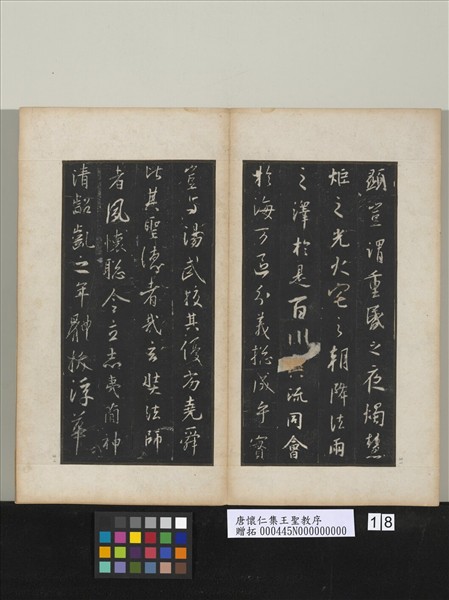 顯豈謂重昏之夜燭慧
炬之光火宅之朝降法雨
之澤於是百川異流同會
於海万區分義總成乎實
豈与湯武挍其優劣堯舜
比其聖德者哉玄奘法師
者夙懷聡令立志夷簡神
清齠齔之年體拔浮華
唐懷仁集王聖教序
贈拓 000445N000000000
18